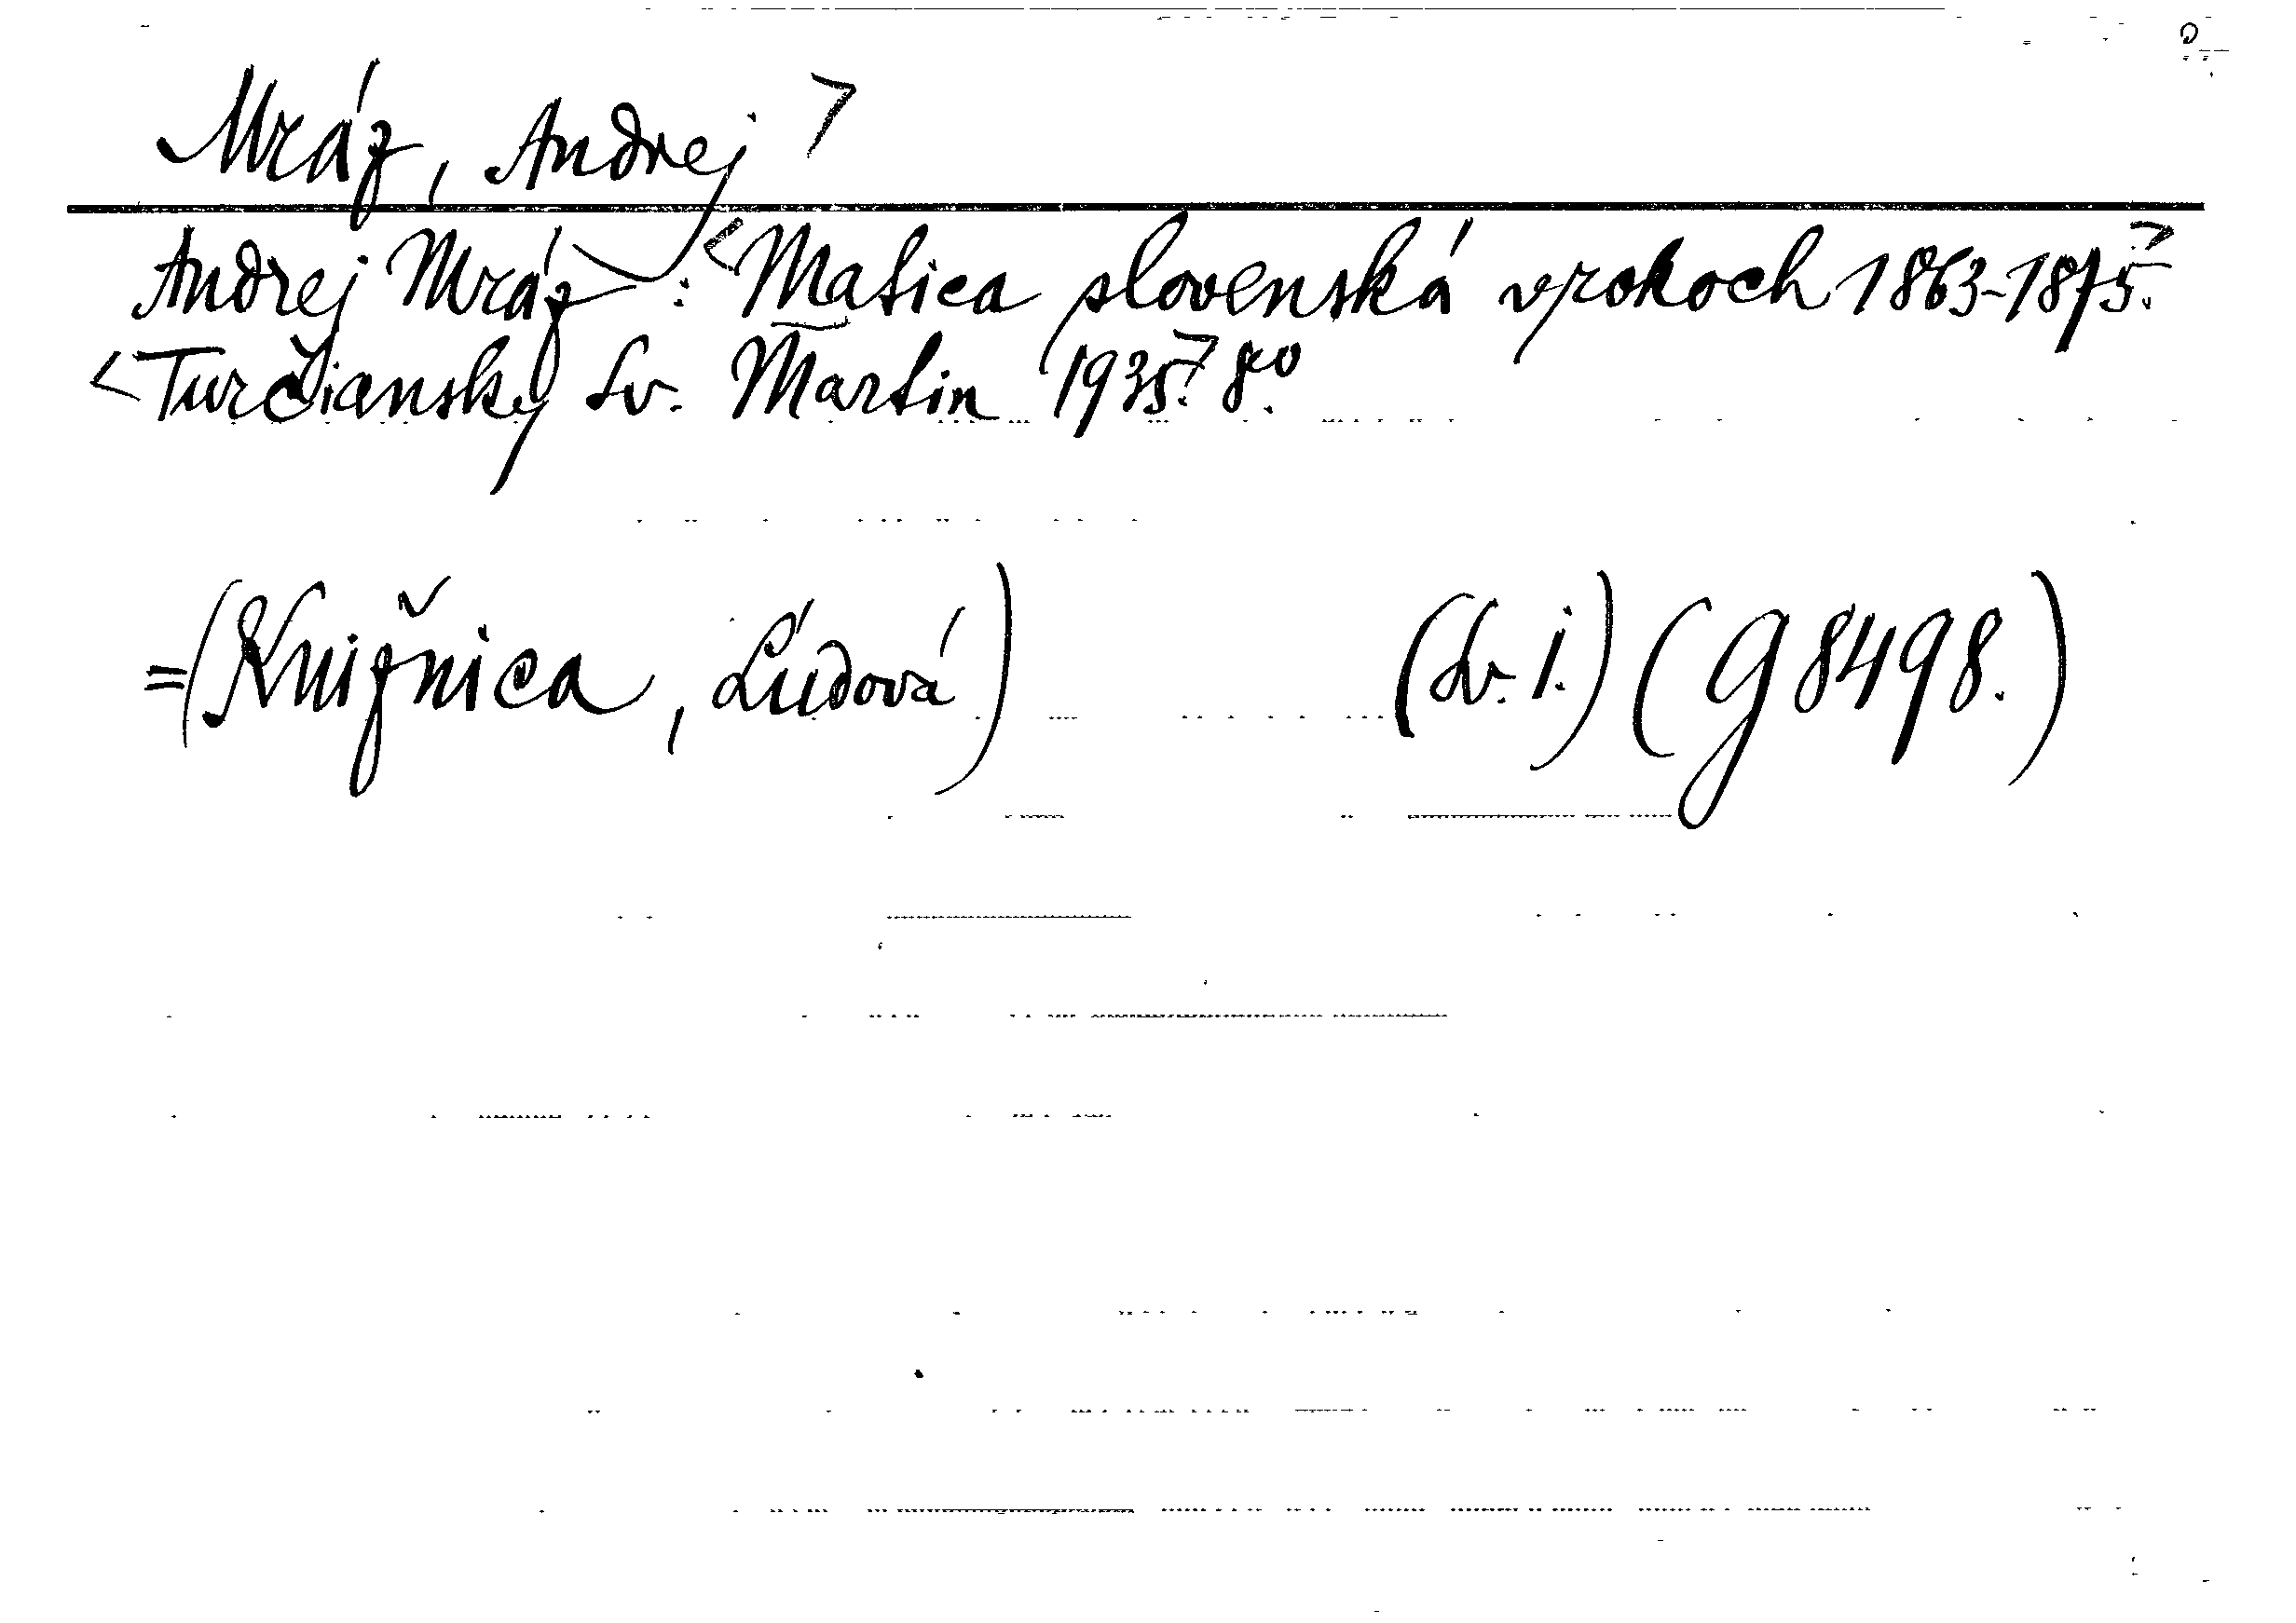 Mráz, Andrej >
Andrej Mráz : <Matica slovenská v rokoch 1863-1875.>
<Turčiansky Sv. Martin 1935.> 8°
=(Knižnica, Ľudová) (Sv. 1.) (G 8498.)